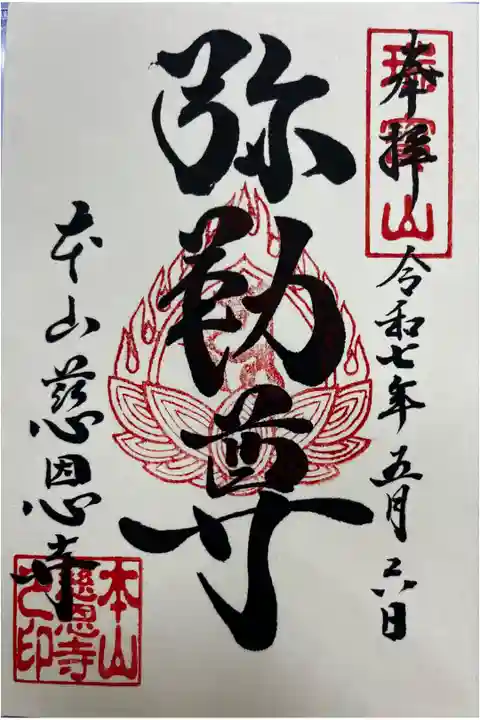 奉拝
瑞寳山
令和七年五月六日
弥勒尊
本山慈恩寺
本山
慈恩寺
之印